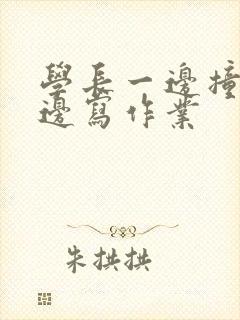 學長一邊撞
邊寫作業
朱拱拱